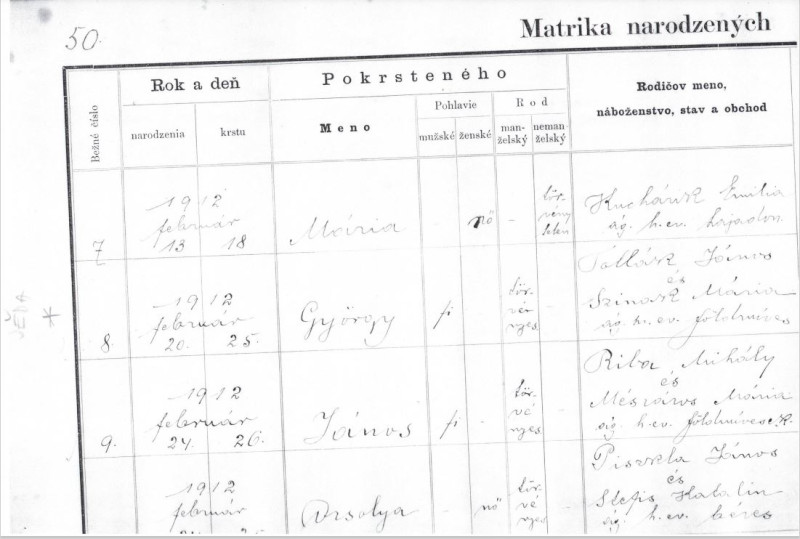 50.
Matrika narodzených
Bežné číslo
Rok a deň
narodzenia
krstu
Pokrsteného
Meno
Pohlavie
mužské
ženské
Rod
man-
želský
neman-
želský
Rodičov meno,
náboženstvo, stav a obchod
7
1912
február
13 18
Mária
-
nő
-
tör-
vény
telen
Kuchárik Emilia
ág. h. ev. hajadon
8.
1912
február
20. 25.
György
fi
-
tör-
vé-
nyes
-
János
és
Mária
ág. h. ev. földmíves
9.
1912
február
24. 26.
János
fi
-
tör-
vé-
nyes
-
Riba Mihály
és
Mészáros Mária
ág. h. ev. földmíves
1912
február
Orsolya
-
nő
tör-
vé-
nyes
-
János
és
Katalin
ág. h. ev. béres